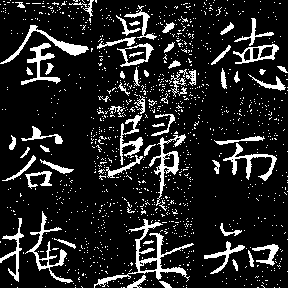 徳而知
影歸真
金容掩